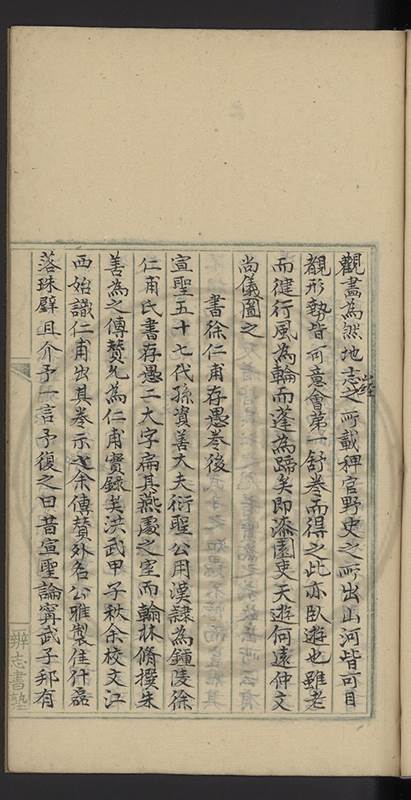 觀畫為然地志經之所載稗官野史之所出山河皆可目
覩形勢皆可意會第一舒卷而得之此亦臥遊也雖老
而健行風為輪而蓬為蹄矣即漆園吏天遊何遠仲文
尚儀圖之
書徐仁甫存愚卷後
宣聖五十七代孫資善大夫衍聖公用漢隸為鍾陵徐
仁甫氏書存愚二大字扁其燕處之室而翰林脩撰朱
善為之傳賛允為仁甫實錄矣洪武甲子秋余校文江
西始識仁甫出其卷示余傳賛外名公雅製佳什磊
落珠璧且介予一言予復之曰昔宣聖論甯武子邦有
辨志書塾